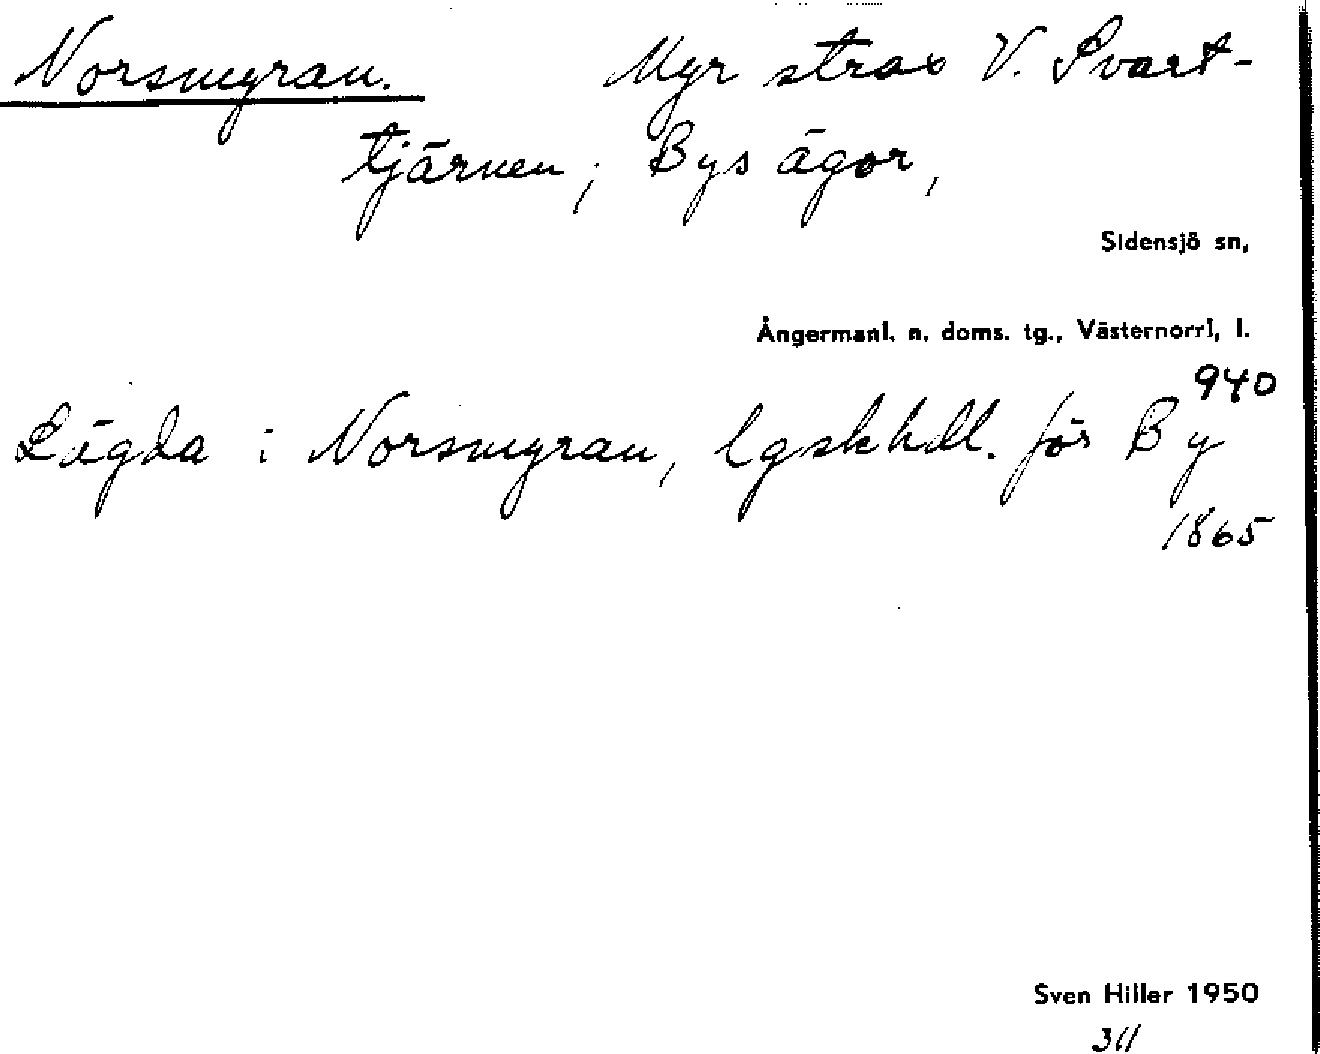 Norsmyran. Myr strax V. Svart-
tjärnen; Bys ägor,
Sidensjö sn,
Ångermanl. n. doms. tg., Västernorrl, l.
940
Lägda i Norsmyran, lgskhdl. för By
1865
Sven Hiller 1950
311